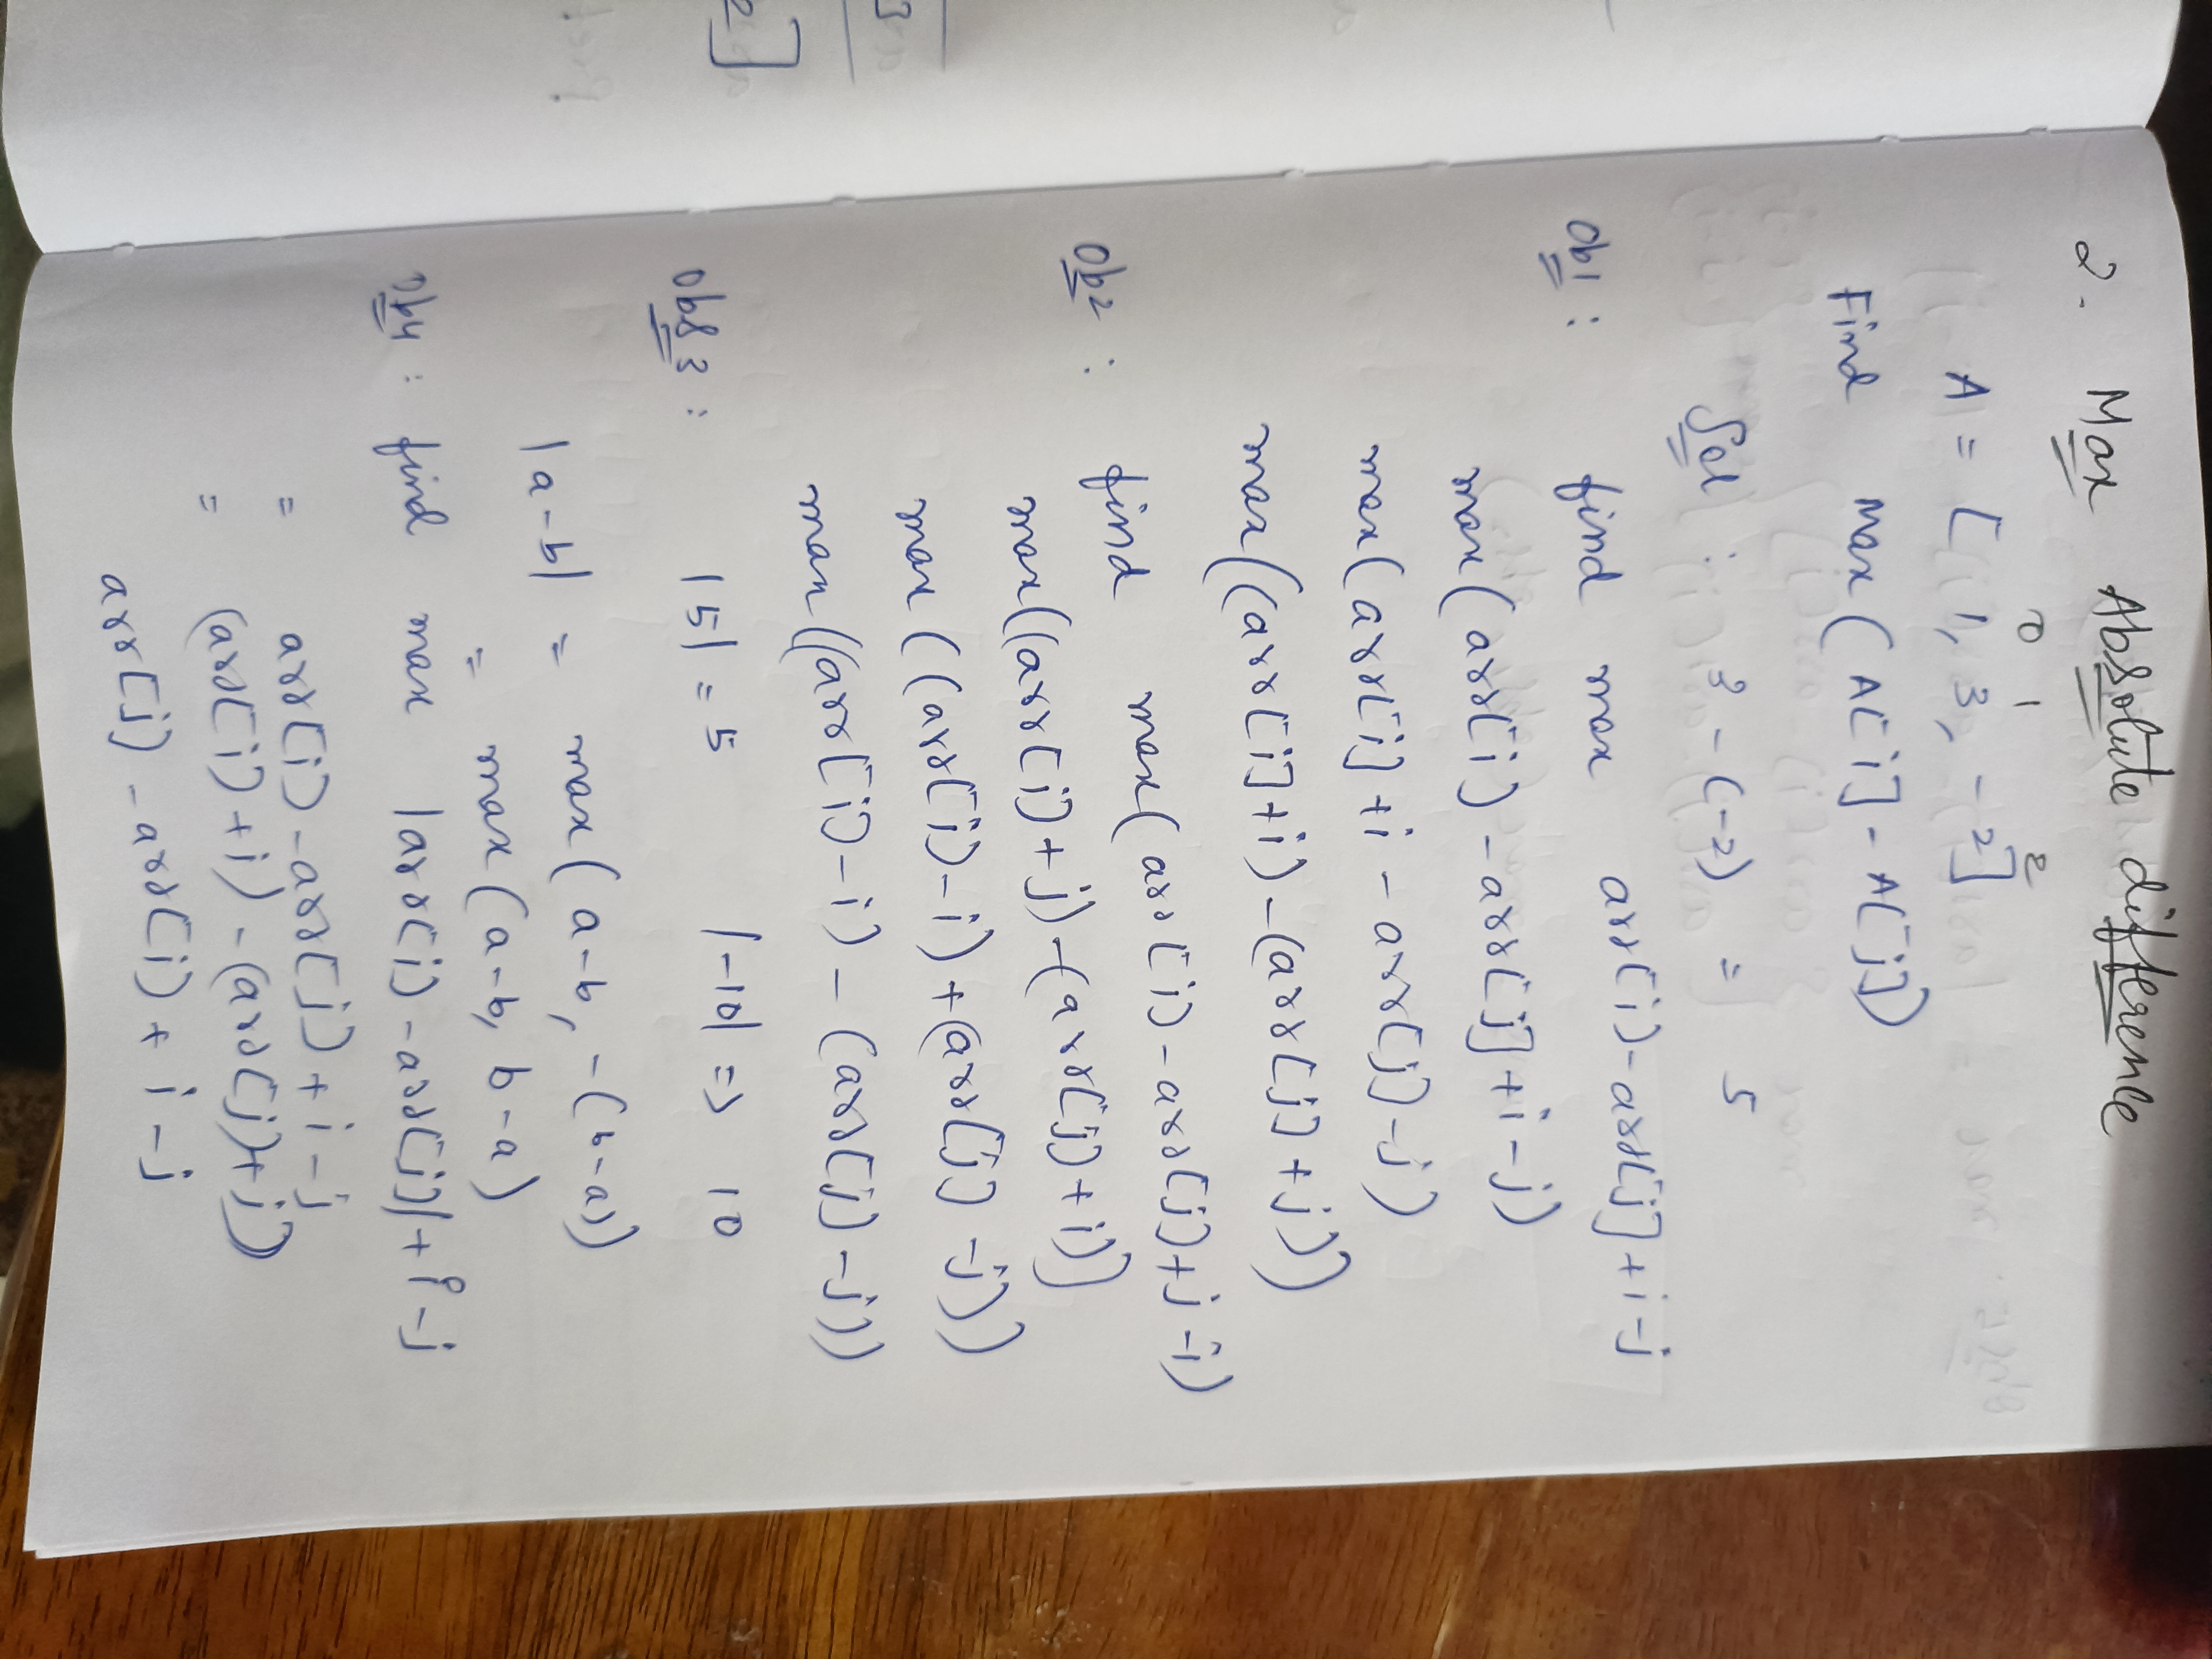 2. Max Absolute difference
0 1 2
A = [1, 3, -2]
Find Max (A[i] - A[j])
Sol : 3 - (-2) = 5
Ob1 : find max arr[i] - arr[j] + i - j
max (arr[i] - arr[j] + i - j)
max (arr[i] + i - arr[j] - j)
max ((arr[i] + i) - (arr[j] + j))
Ob2 : find max (arr[i] - arr[j] + j - i)
max ((arr[i] + j) - (arr[j] + i)]
max ((arr[i] - i) + (arr[j] - j))
max ((arr[i] - i) - (arr[j] - j))
Obs3 : |5| = 5 |-10| => 10
|a-b| = max (a-b, -(b-a))
= max (a-b, b-a)
Ob4 : find max |arr[i] - arr[j]| + i - j
= arr[i] - arr[j] + i - j
= (arr[i] + i) - (arr[j] + j)
arr[j] - arr[i] + i - j